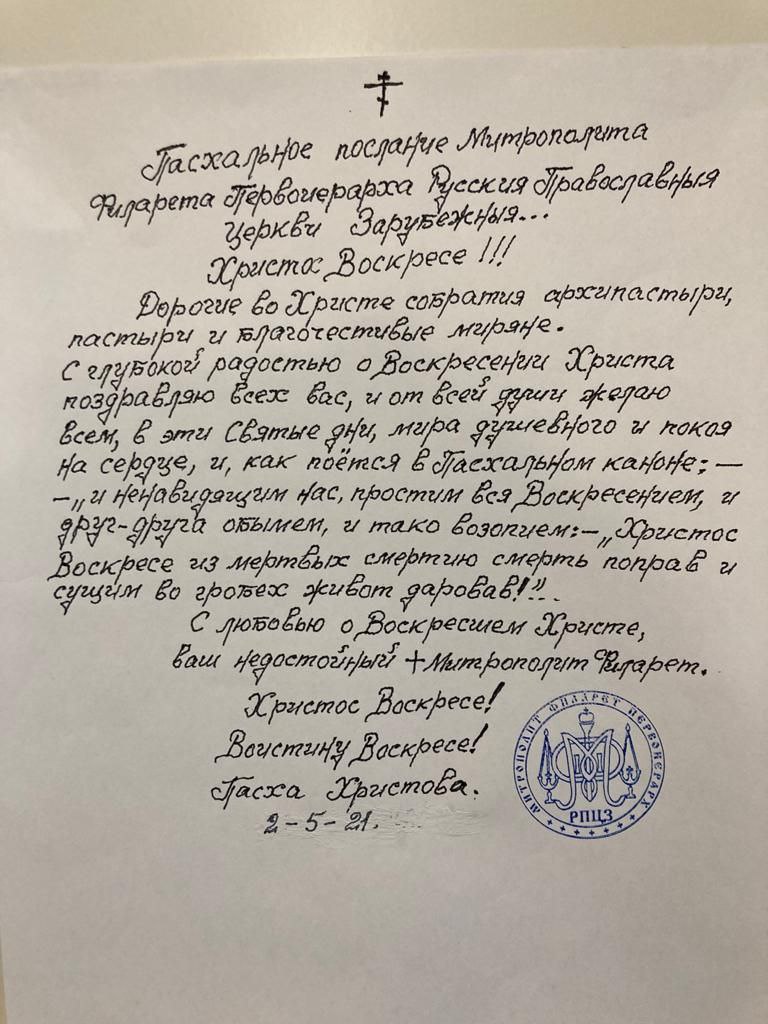 Пасхальное послание Митрополита
Филарета Первоиерарха Русския Православныя
Церкви Зарубежныя...
Христос Воскресе!!!
Дорогие во Христе собратия архипастыри,
пастыри и благочестивые миряне.
С глубокой радостью о Воскресении Христа
поздравляю всех вас, и от всей души желаю
всем, в эти Святые дни, мира душевного и покоя
на сердце, и, как поётся в Пасхальном каноне: —
-„и ненавидящим нас, простим вся Воскресением, и
друг-друга обымем, и тако возопием:-„Христос
Воскресе из мертвых смертию смерть поправ и
сущим во гробех живот даровав!"...
С любовью о Воскресшем Христе,
ваш недостойный +Митрополит Филарет.
Христос Воскресе!
Воистину Воскресе!
Пасха Христова.
2-5-21.
МИТРОПОЛИТ ФИЛАРЕТ ПЕРВОИЕРАРХ
РПЦЗ